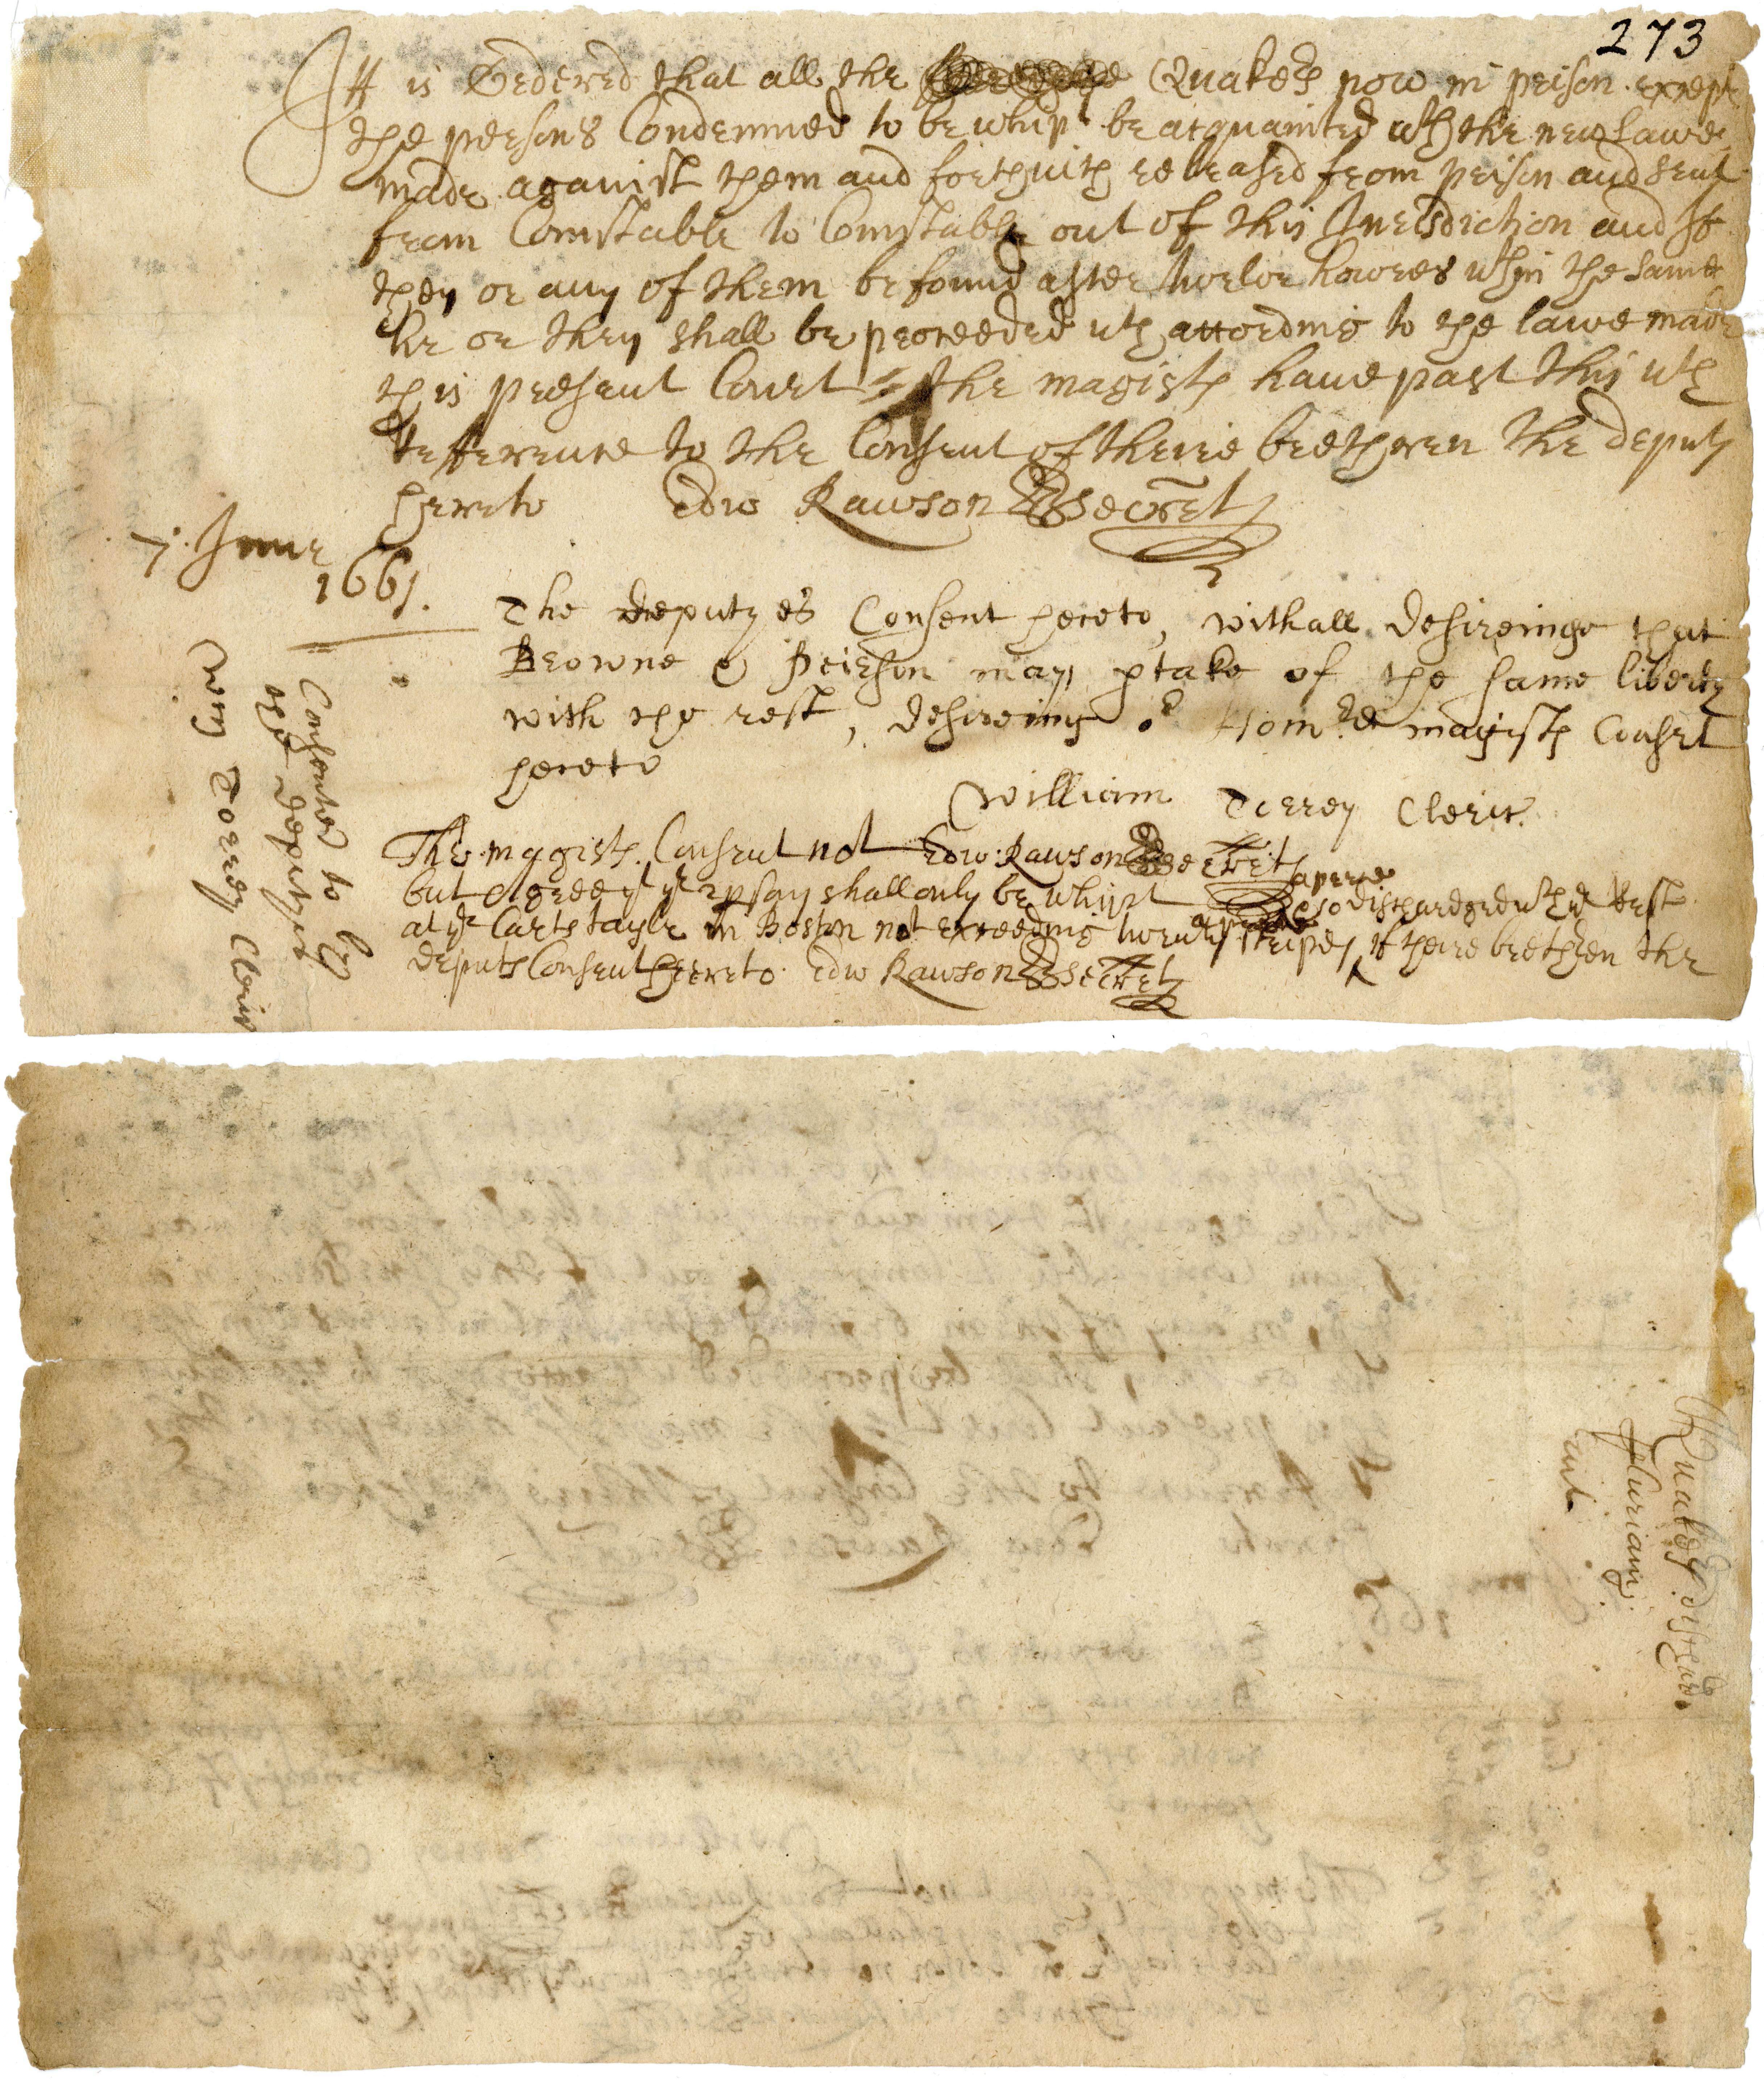 273
It is Ordered that all the Quakers now in prison except
the persons Condemned to be whipt be acquainted wth the new lawe
made against them and forthwith released from prison and sent
from Constable to Constable out of this Jurisdiction and If
they or any of them be found after twelve howres wthin the same
he or they shall be proceeded wth according to the lawe made
this present Court The magists have past this wth
refference to the Consent of theire brethren the deputs
hereto Edw Rawson Secrety
7. June
1661.
The deputyes Consent hereto, withall desireinge that
Browne & Peirson may ptake of the same liberty
with the rest, desireing or Honrd magists Consent
hereto
William Torrey Cleric.
Consented to by
the deputyes
Wm Torrey Cleric
The magists. Consent not Edw: Rawson Secrety
but Agree yt ye psons shall only be whipt
& so dischardged wth ye Rest
at ye Carts tayle in Boston not exceeding twenty stripes apeece if theire brethren the
deputs Consent heereto. Edw Rawson Secrety
Quakers dischard